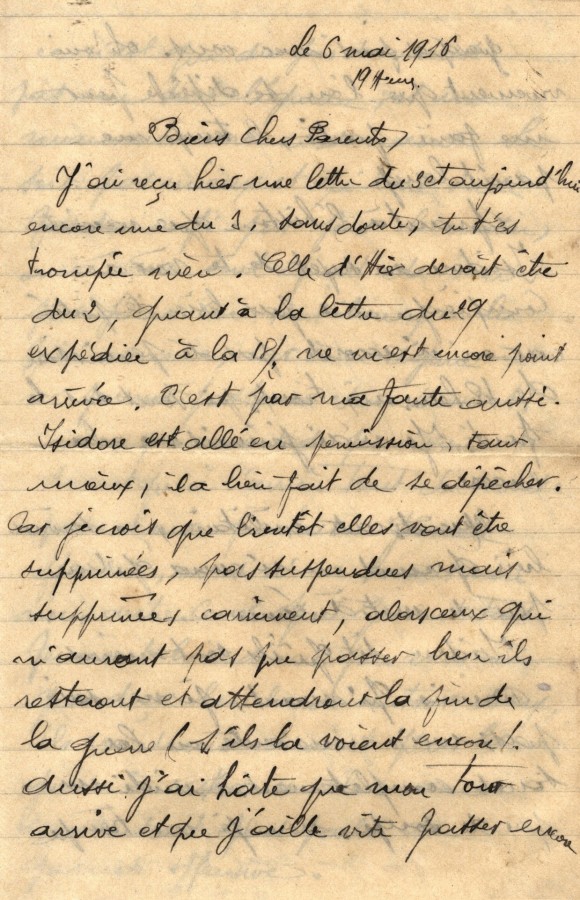 Le 6 mai 1916
19 Heures.
Biens Chers Parents,
J'ai reçu hier une lettre du 3 et aujourd'hui
encore une du 3, sans doute, tu t'es
trompée mère. Celle d'Hier devait être
du 2, quant à la lettre du 29
expédiée à la 18/. ne m'est encore point
arrivée. C'est par ma faute aussi.
Isidore est allé en permission, tant
mieux, il a bien fait de se dépêcher.
Car je crois que bientôt elles vont être
supprimées, pas suspendues mais
supprimées carrément, alors ceux qui
n'auront pas pu passer bien ils
resteront et attendront la fin de
la guerre (s'ils la voient encore).
Aussi j'ai hâte que mon tour
arrive et que j'aille vite passer encore